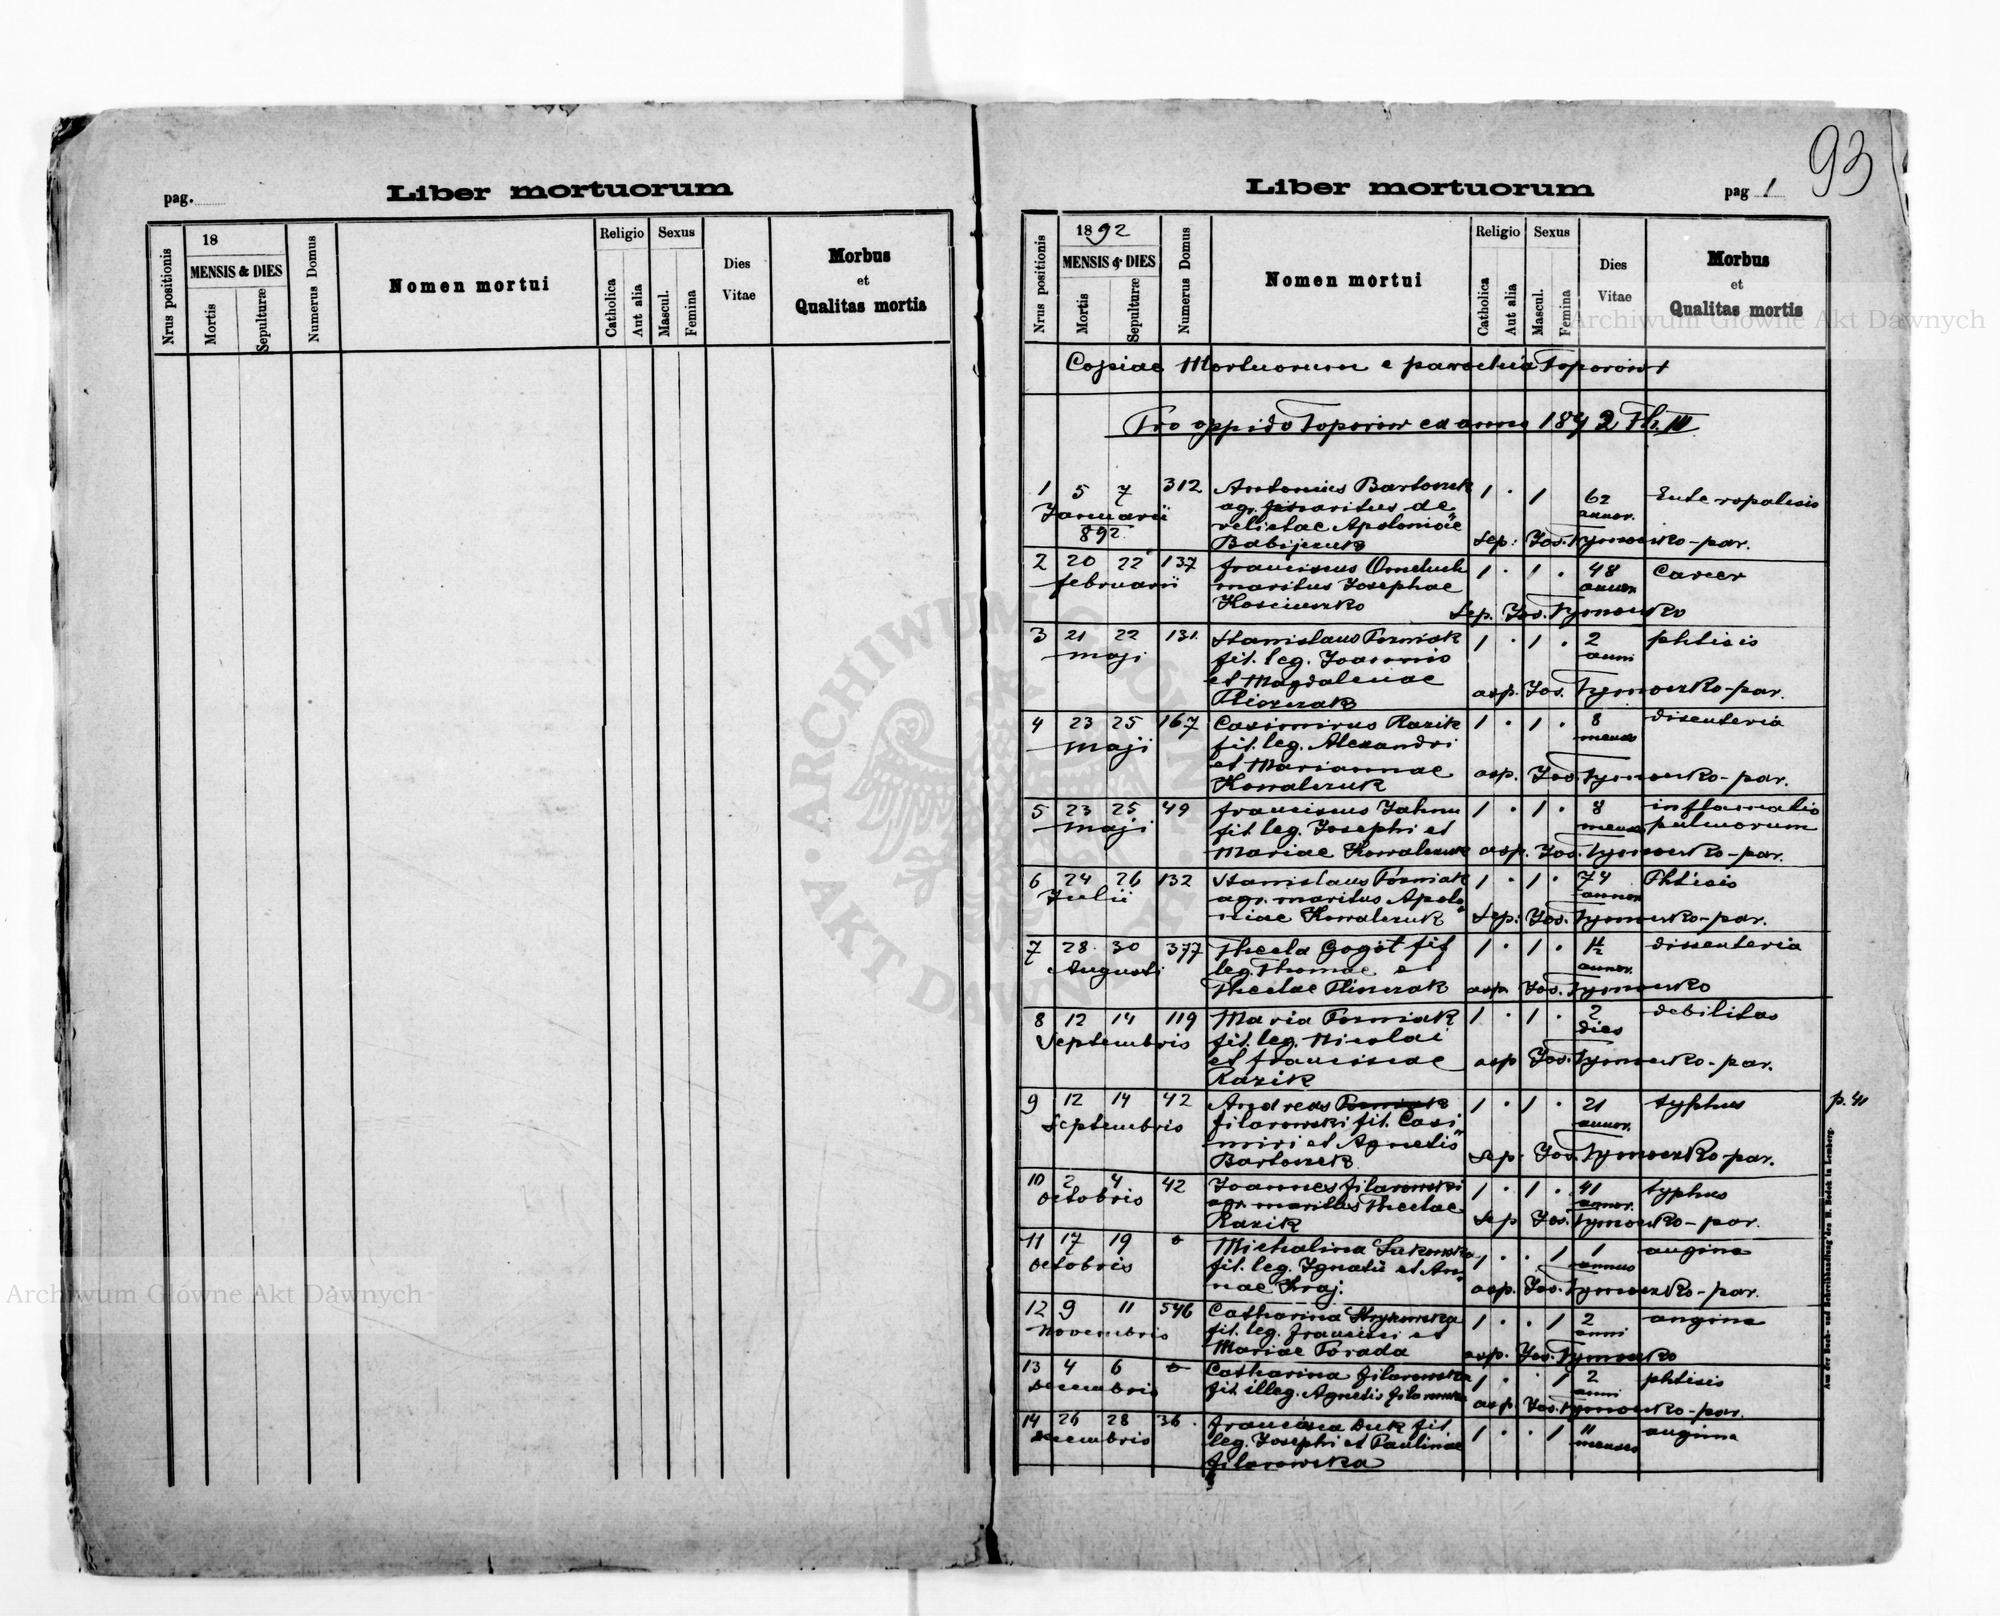 93
pag.
Liber mortuorum
Nrus positionis
18
MENSIS & DIES
Mortis
Sepulturæ
Numerus Domus
Nomen mortui
Religio
Catholica
Aut alia
Sexus
Mascul.
Femina
Dies
Vitae
Morbus
et
Qualitas mortis
Liber mortuorum
pag 1
Nrus positionis
1892
MENSIS & DIES
Mortis
Sepulturæ
Numerus Domus
Nomen mortui
Religio
Catholica
Aut alia
Sexus
Mascul.
Femina
Dies
Vitae
Morbus
et
Qualitas mortis
Copiae Mortuorum e parochia Toporow
Pro oppido Toporow ex anno 1892
1 5 7 312 Antonius Bartoszek 1 · 1 62
Januarii agr. maritus de annor.
892 relictae Apoloniae
Babijczuk Sep: Jos. Tymoczko-par.
2 20 22 137 franciscus Omeluch 1 · 1 · 48 Cancer
februarii maritus Josephae annor.
Kosciuszko Sep. Jos. Tymoczko
3 21 22 131. Stanislaus Pozniak 1 · 1 · 2 phtisis
maji fil. leg. Joannis anni
et Magdalenae asp. Jos. Tymoczko-par.
4 23 25 167 Casimirus Razik 1 · 1 · 8 disenteria
maji fil. leg. Alexandri menses
et Mariannae asp. Jos. Tymoczko-par.
Kowalczuk
5 23 25 49 franciscus Jahnu 1 · 1 · 8 inflamatio
maji fil. leg. Josephi et menses pulmorum
Mariae Kowalczuk asp. Jos. Tymoczko-par.
6 24 26 132 Stanislaus Pozniak 1 · 1 · 74 Phtisis
Julii agr. maritus Apolo- annor
niae Kowalczuk Sep: Jos. Tymoczko-par.
7 28 30 377 Thecla Gogót fil 1 · 1 · dissenteria
Augusti leg. Thomae et annor.
Theclae asp Jos. Tymoczko
8 12 14 119 Maria Pozniak 1 · 1 · 2 debilitas
Septembris fil. leg. Nicolai dies
et franciscae asp Jos. Tymoczko-par.
Razik
9 12 14 42 Andreas Pozniak 1 · 1 · 21 typhus p. 41
Septembris filarowski fil. Casi- annor.
miri et Agnetis
Bartoszek Sep: Jos. Tymoczko-par.
10 2 4 42 Joannes filarowski 1 · 1 · 41 typhus
Octobris agr. maritus Theclae annor.
Razik Sep Jos. Tymoczko-par.
11 17 19 Michalina 1 · · 1 1 angina
Octobris fil. leg. Ignatii et An- annus
nae Kraj. asp. Jos. Tymoczko-par.
12 9 11 546 Catharina Strykowska 1 · · 1 2 angina
Novembris fil. leg. francisci et anni
Mariae Torada asp. Jos. Tymoczko
13 4 6 Catharina filarowska 1 · · 1 2 phtisis
Decembris fil. illeg. Agnetis filarowska anni
asp. Jos. Tymoczko-par.
14 26 28 36 francisca Duk fil. 1 · · 1 11 angina
Decembris leg. Josephi et Paulinae menses
filarowska
Aus der Buch- und Schreibhandlung des H. Bodek in Lemberg.
Archiwum Główne Akt Dawnych
Archiwum Główne Akt Dawnych
ARCHIWUM GŁÓWNE AKT DAWNYCH